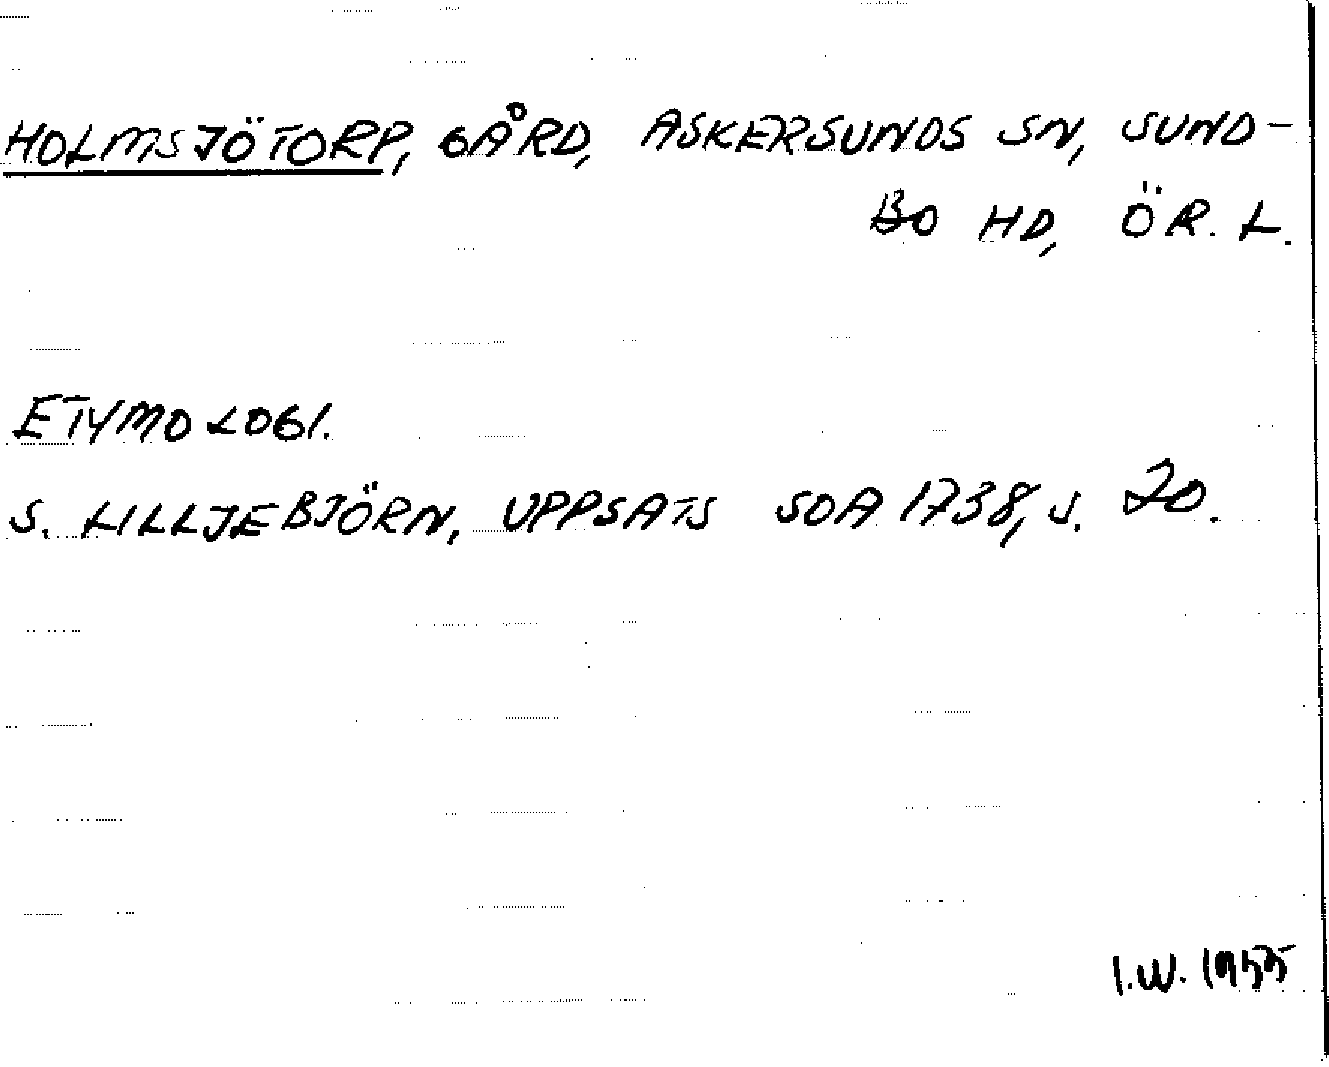 HOLMSJÖTORP, GÅRD, ASKERSUNDS SN, SUND-
BO HD, ÖR. L.
ETYMOLOGI.
S. LILLJEBJÖRN, UPPSATS SOA 1738, S. 20.
I.W. 1955